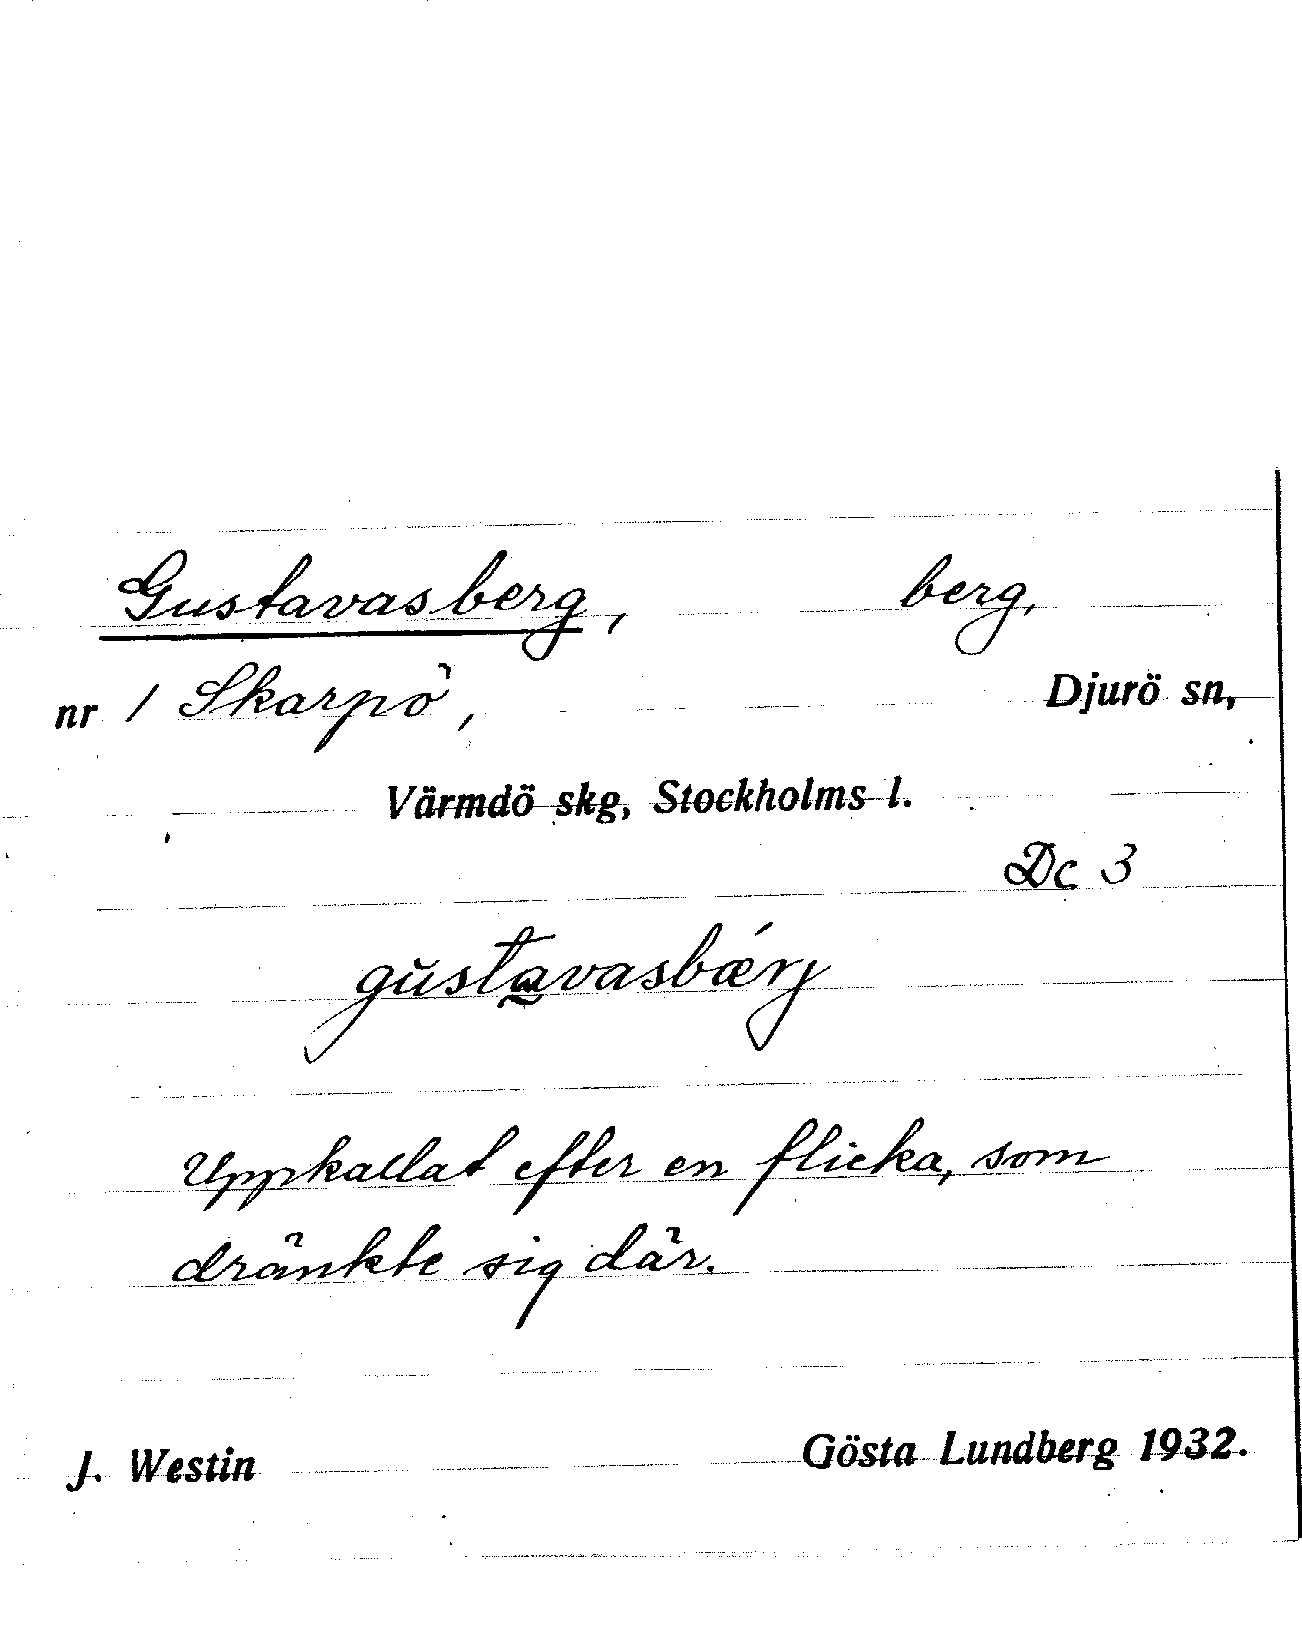 Gustavasberg, berg,
nr 1 Skarpö, Djurö sn,
Värmdö skg, Stockholms l.
Dc 3
gŭstavasbǽrj
Uppkallat efter en flicka, som
dränkte sig där.
J. Westin Gösta Lundberg 1932.